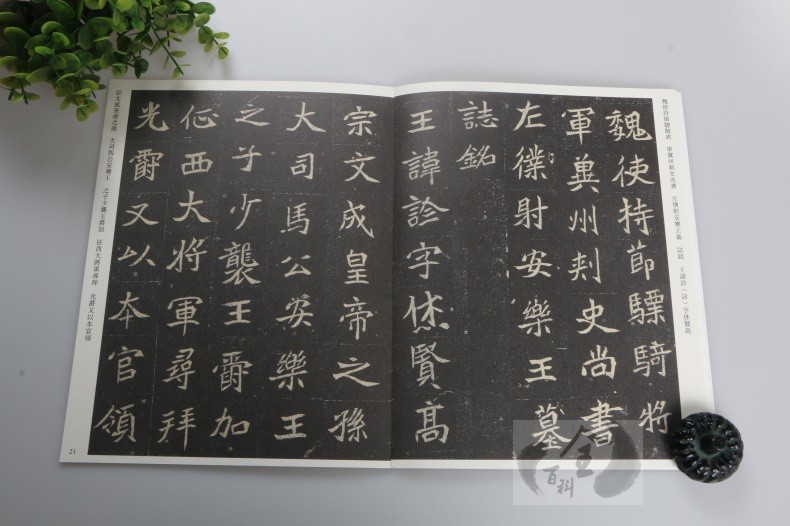 魏使持節驃騎將 軍冀州刺史尚書 左僕射安樂王墓 誌銘
魏使持節驃騎將
軍冀州刾史尚書
左僕射安樂王墓
誌銘
王諱詮字休賢高
宗文成皇帝之孫
大司馬公安樂王
之子少襲王爵加
征西大將軍尋拜
光爵又以本官領
宗文成皇帝之孫 大司馬公安樂王 之子少襲王爵加 征西大將軍尋拜 光爵又以本官領
21
全
百科